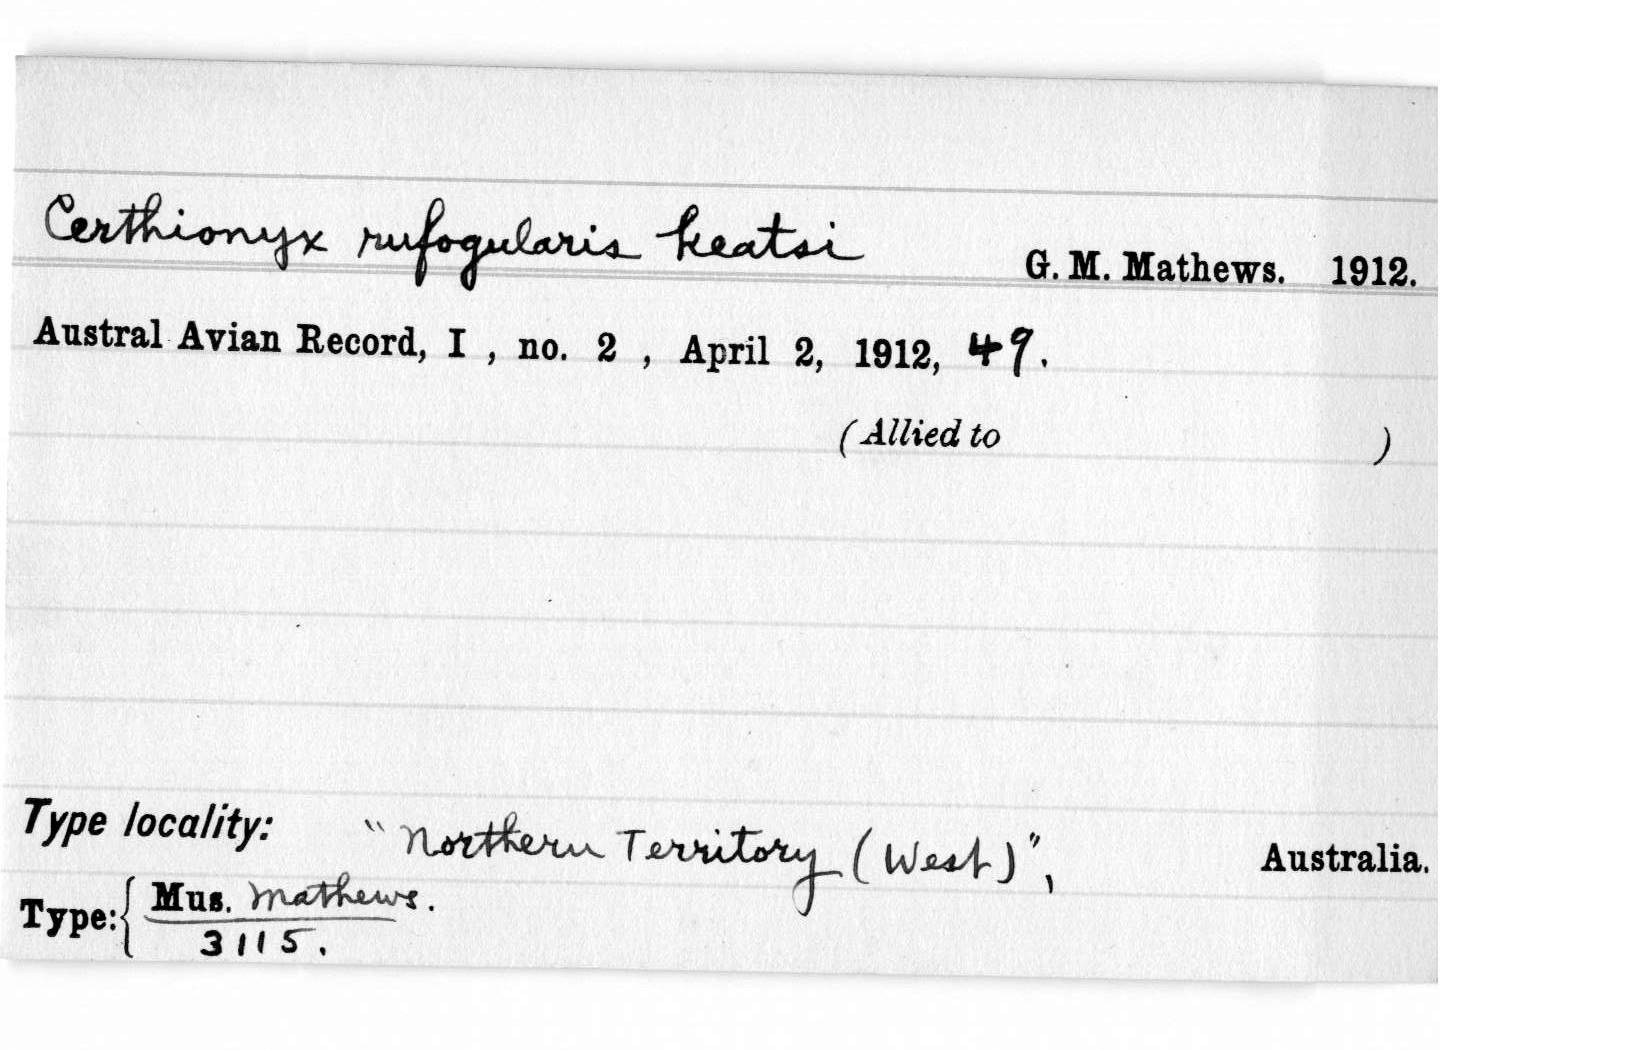 Certhionyx rufogularis keatsi G. M. Mathews. 1912.
Austral Avian Record, I , no. 2 , April 2, 1912, 49.
(Allied to )
Type locality: "Northern Territory (West)", Australia.
Type: { Mus. Mathews.
3115.